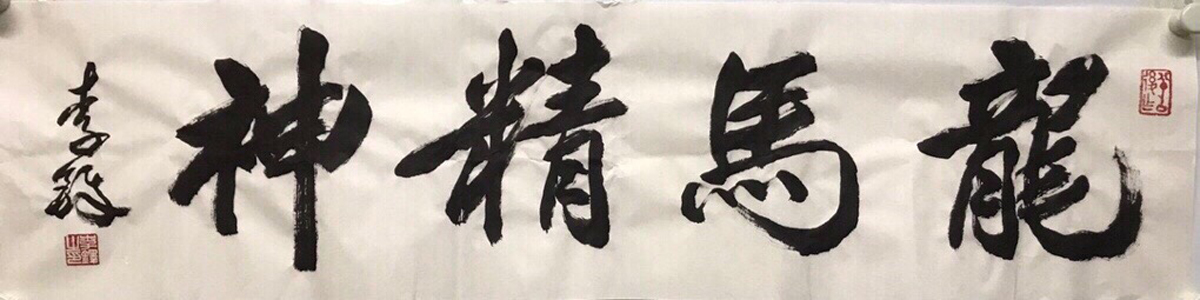 龍馬精神
李鐸